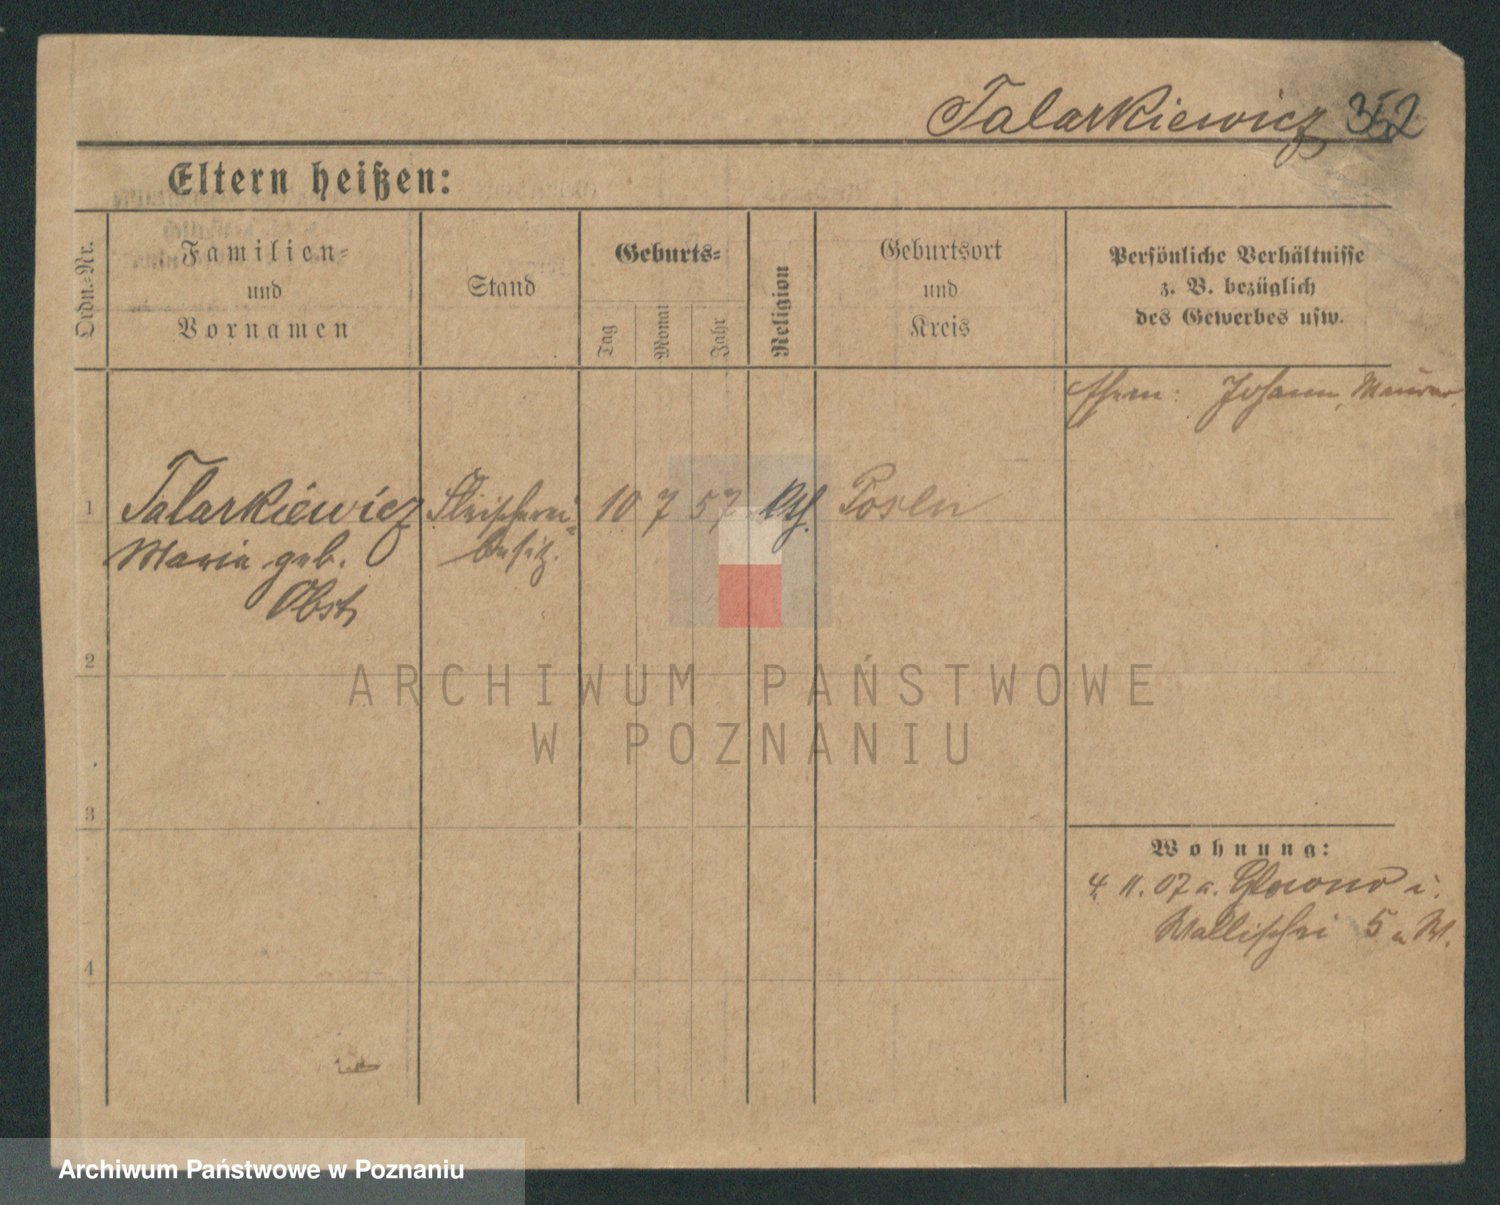 Talarkiewicz 352
Eltern heißen:
Ordn.-Nr.
Familien-
und
Vornamen
Stand
Geburts-
Tag
Monat
Jahr
Religion
Geburtsort
und
Kreis
Persönliche Verhältnisse
z. B. bezüglich
des Gewerbes usw.
Ehem: Johann, Maurer
1 Talarkiewicz Fleischerei- 10 7 57 kth. Posen
Maria geb. besitz.
Obst
2
3
4
Wohnung:
4. 11. 07 a. Glowno i.
Wallischei 5 a W.
ARCHIWUM PAŃSTWOWE
W POZNANIU
Archiwum Państwowe w Poznaniu